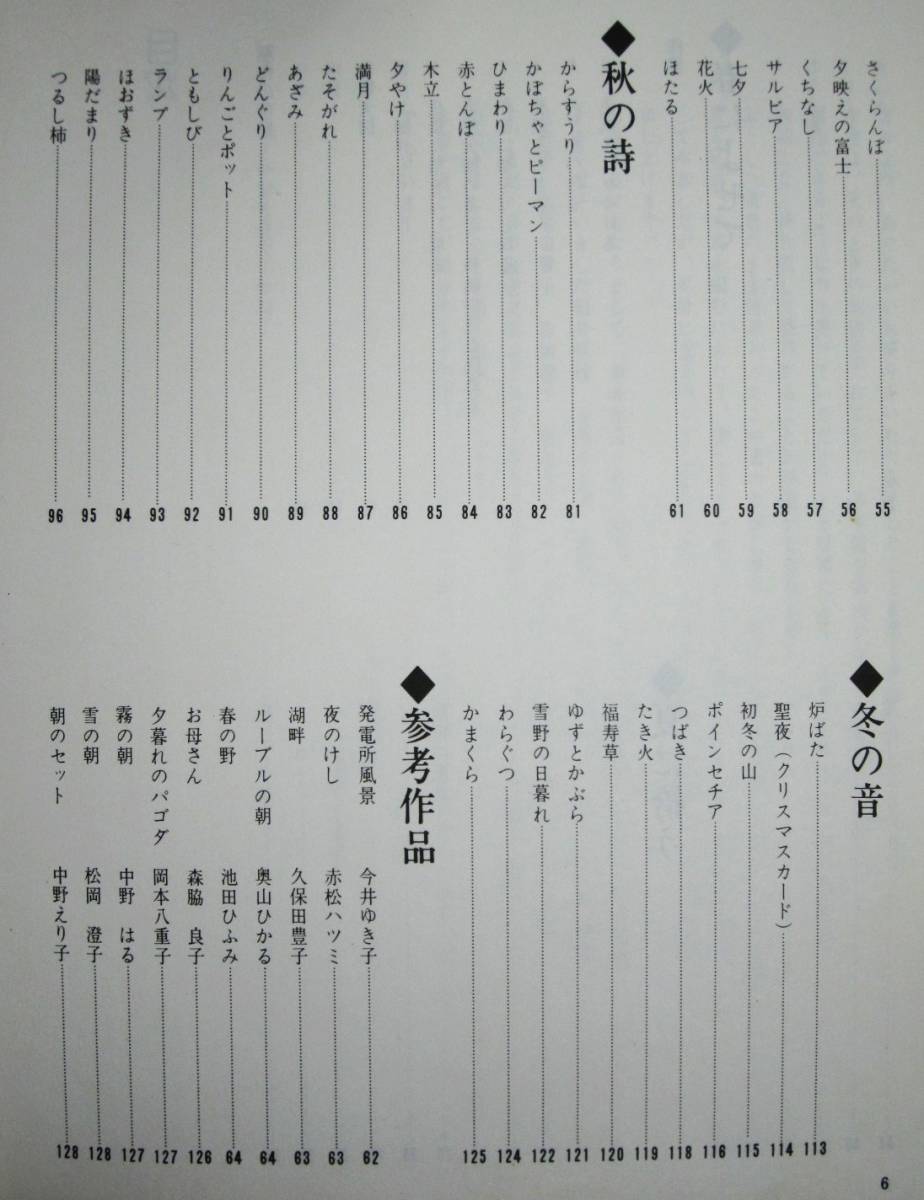 さくらんぼ 55
夕映えの富士 56
くちなし 57
サルビア 58
七夕 59
花火 60
ほたる 61
◆秋の詩
からすうり 81
かぼちゃとピーマン 82
ひまわり 83
赤とんぼ 84
木立 85
夕やけ 86
満月 87
たそがれ 88
あざみ 89
どんぐり 90
りんごとポット 91
ともしび 92
ランプ 93
ほおずき 94
陽だまり 95
つるし柿 96
◆冬の音
炉ばた 113
聖夜(クリスマスカード) 114
初冬の山 115
ポインセチア 116
つばき 118
たき火 119
福寿草 120
ゆずとかぶら 121
雪野の日暮れ 122
わらぐつ 124
かまくら 125
◆参考作品
発電所風景 今井ゆき子 62
夜のけし 赤松ハツミ 63
湖畔 久保田豊子 63
ルーブルの朝 奥山ひかる 64
春の野 池田ひふみ 64
お母さん 森脇 良子 126
夕暮れのパゴダ 岡本八重子 127
霧の朝 中野 はる 127
雪の朝 松岡 澄子 128
朝のセット 中野えり子 128
6